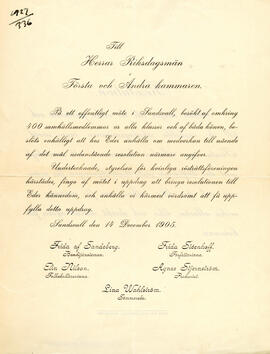 Till
Herrar Riksdagsmän
i
Första och Andra kammaren.
På ett offentligt möte i Sundsvall, besökt af omkring
400 samhällsmedlemmar af alla klasser och af båda könen, be-
slöts enhälligt att hos Eder anhålla om medverkan till nående
af det mål nedanstående resolution närmare angifver.
Undertecknade, styrelse för kvinliga rösträttsföreningen
härstädes, fingo af mötet i uppdrag att bringa resolutionen till
Eder kännedom, och anhålla vi härmed vördsamt att få upp-
fylla detta uppdrag.
Sundsvall den 14 December 1905.
Frida af Sandeberg.
Frida Stéenhoff.
Författarinna.
Elin Nilson.
Folkskollärarinna.
Agnes Stjernström.
Lina Wahlström.
Sömmerska.